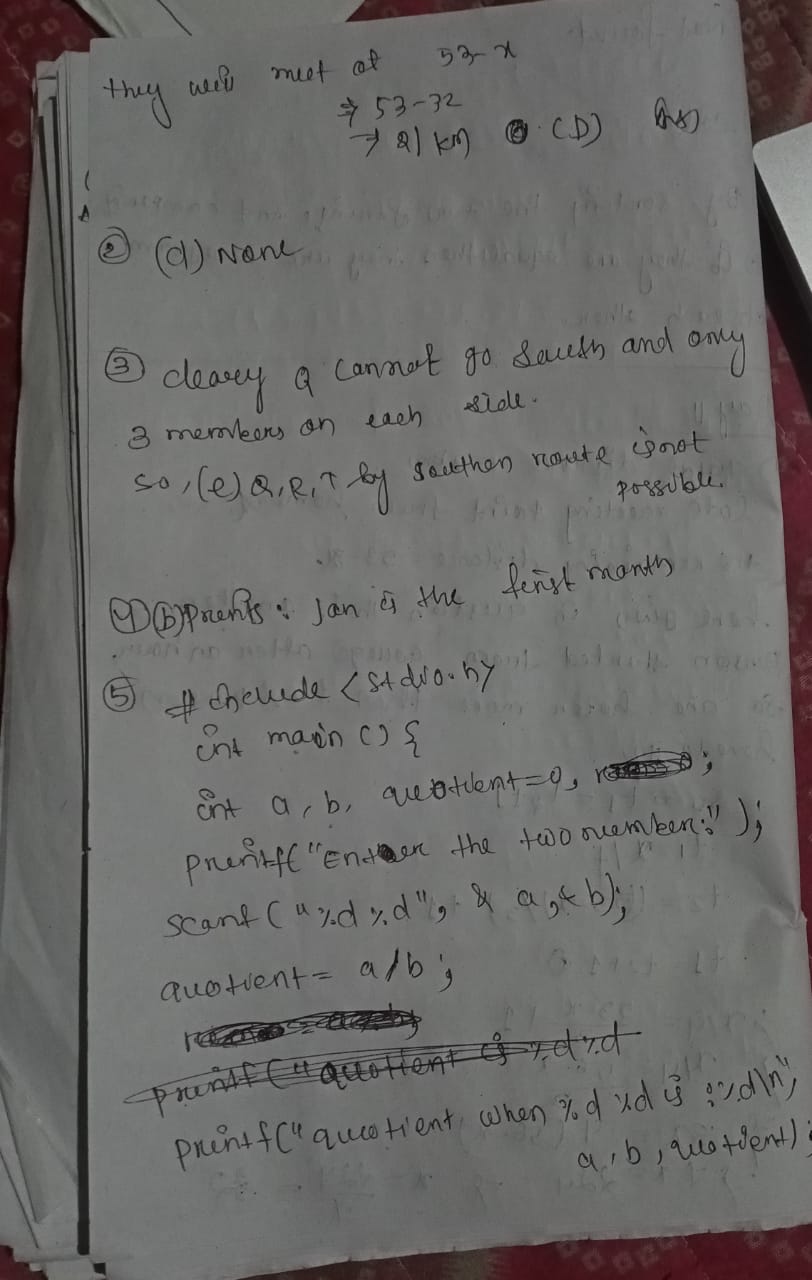 they will meet at 53-x
⇒ 53-32
→ 21 km (D) Ans)
② (d) None
③ cleary Q cannot go South and only
3 members on each side.
so, (e) Q, R, T by southen route is not
possible.
④ (b) Prints : Jan is the first month
⑤ # include <stdio.h>
int main () {
int a, b, quotient=0, ;
printf("Enter the two number:");
scanf ("%d %d", & a, & b);
quotient = a/b;
printf("quotient is %d %d
printf("quotient when %d %d is :%d\n",
a, b, quotient);